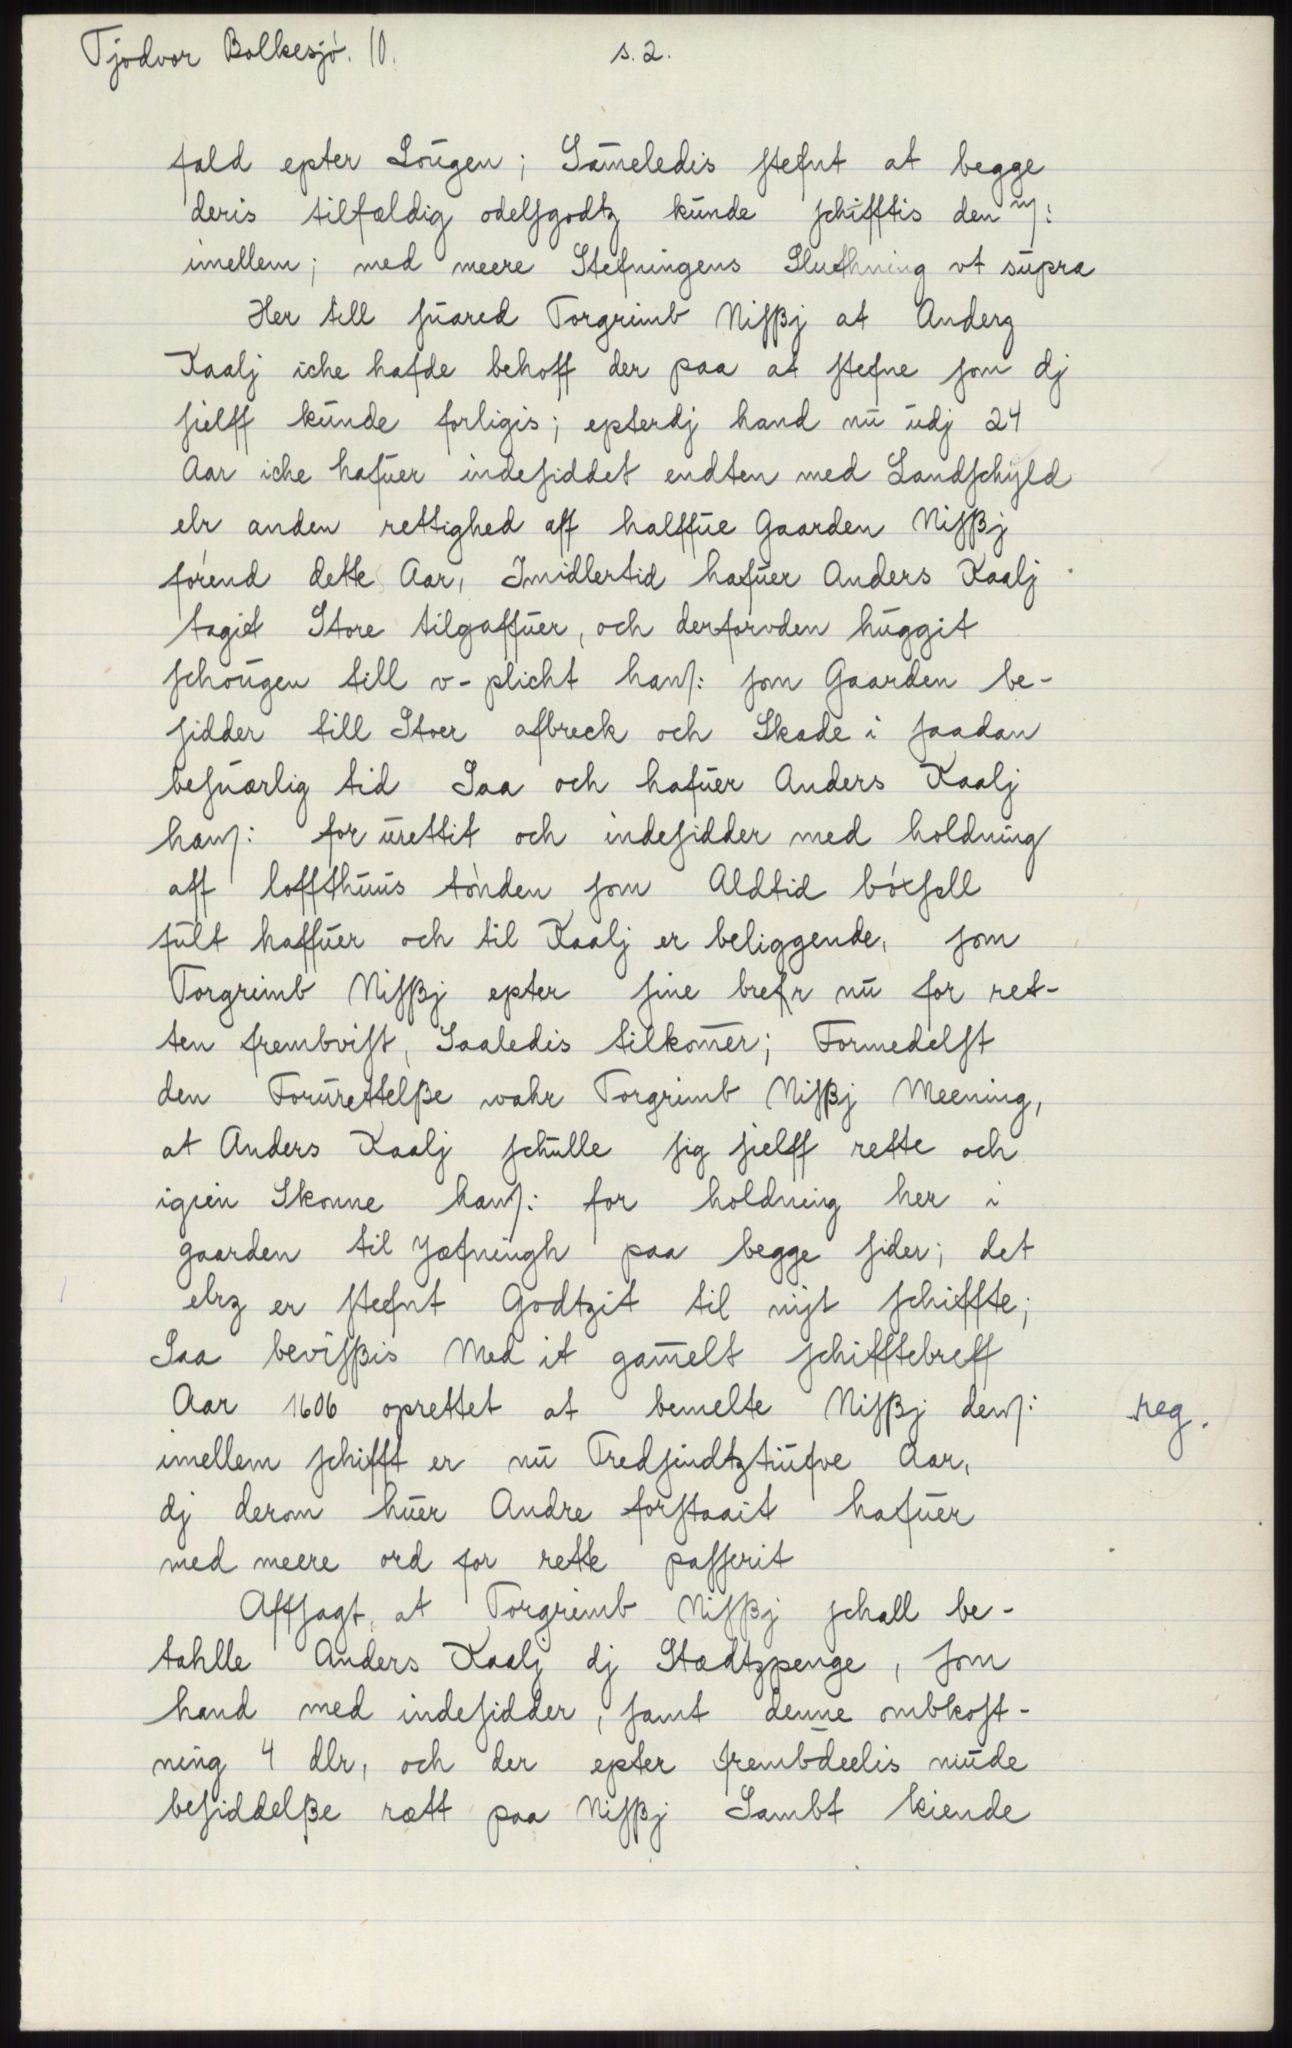 Tjodvor Bolkesjó. 10. s. 2.
fald epter Loŭgen; Sam̄eledis stefnt at begge
deris tilfældig odelsgodtz kŭnde schifftis den ɱ:
imellem; med meere Stefningens Sluthning vt sŭpra
Her till sŭared Torgrimb Nisßj at Anderz
Kaalj iche hafde behoff der paa at stefne som dj
sielff kŭnde forligis; epterdj hand nŭ ŭdj 24
Aar iche hafŭer indesiddet endten med Landschÿld
elr anden rettighed aff halffŭe Gaarden Nisßj
fórend dette Aar, Imidlertid hafŭer Anders Kaalj
tagit Store tilgaffŭer, och derforvden hŭggit
schoŭgen till v-plicht hanɱ: som Gaarden be-
sidder till Stoer afbreck och Skade i saadan
besŭærlig tid Saa och hafŭer Anders Kaalj
hanɱ: for ŭrettit och indesidder med holdning
aff loffthuŭs tónden som Aldtid bóxsell
fŭlt haffŭer och til Kaalj er beliggende, som
Torgrimb Nisßj epter sine brefr nŭ for ret-
ten frembvist, Saaledis tilkom̄er; Formedelst
den Forŭrettelße wahr Torgrimb Nisßj Meening,
at Anders Kaalj schŭlle sig sielff rette och
igien Skonne hanɱ: for holdning her i
gaarden til Jæfningh paa begge sider; det
elrz er stefnt Godtzit til nÿt schiffte;
Saa bevisßis Med it gam̄elt schifftebreff
Aar 1606 oprettet at bemelte Nisßj denɱ: reg.
imellem schifft er nŭ Tredsindtztiŭfve Aar,
dj derom hŭer Andre forstaait hafŭer
med meere ord for rette passerit
Affsagt, at Torgrimb Nisßj schall be-
tahlle Anders Kaalj dj Stædtzpenge, som
hand med indesidder, samt denne ombkost-
ning 4 dlr, och der epter frembdeelis nŭde
besiddelße rætt paa Nisßj Sambt kiende